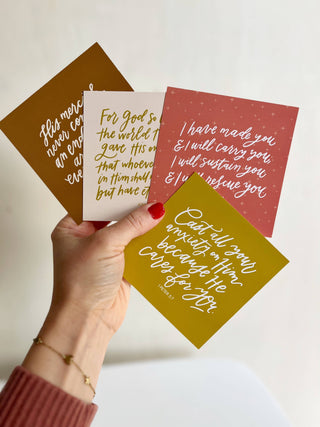 His merc
never co
an en
a
eve
For God so l
the world t
gave His on
that whoev
in Him shall
but have et
I have made you
& I will carry you,
I will sustain you
& I will rescue you
Cast all your
anxiety on Him
because He
cares for you.